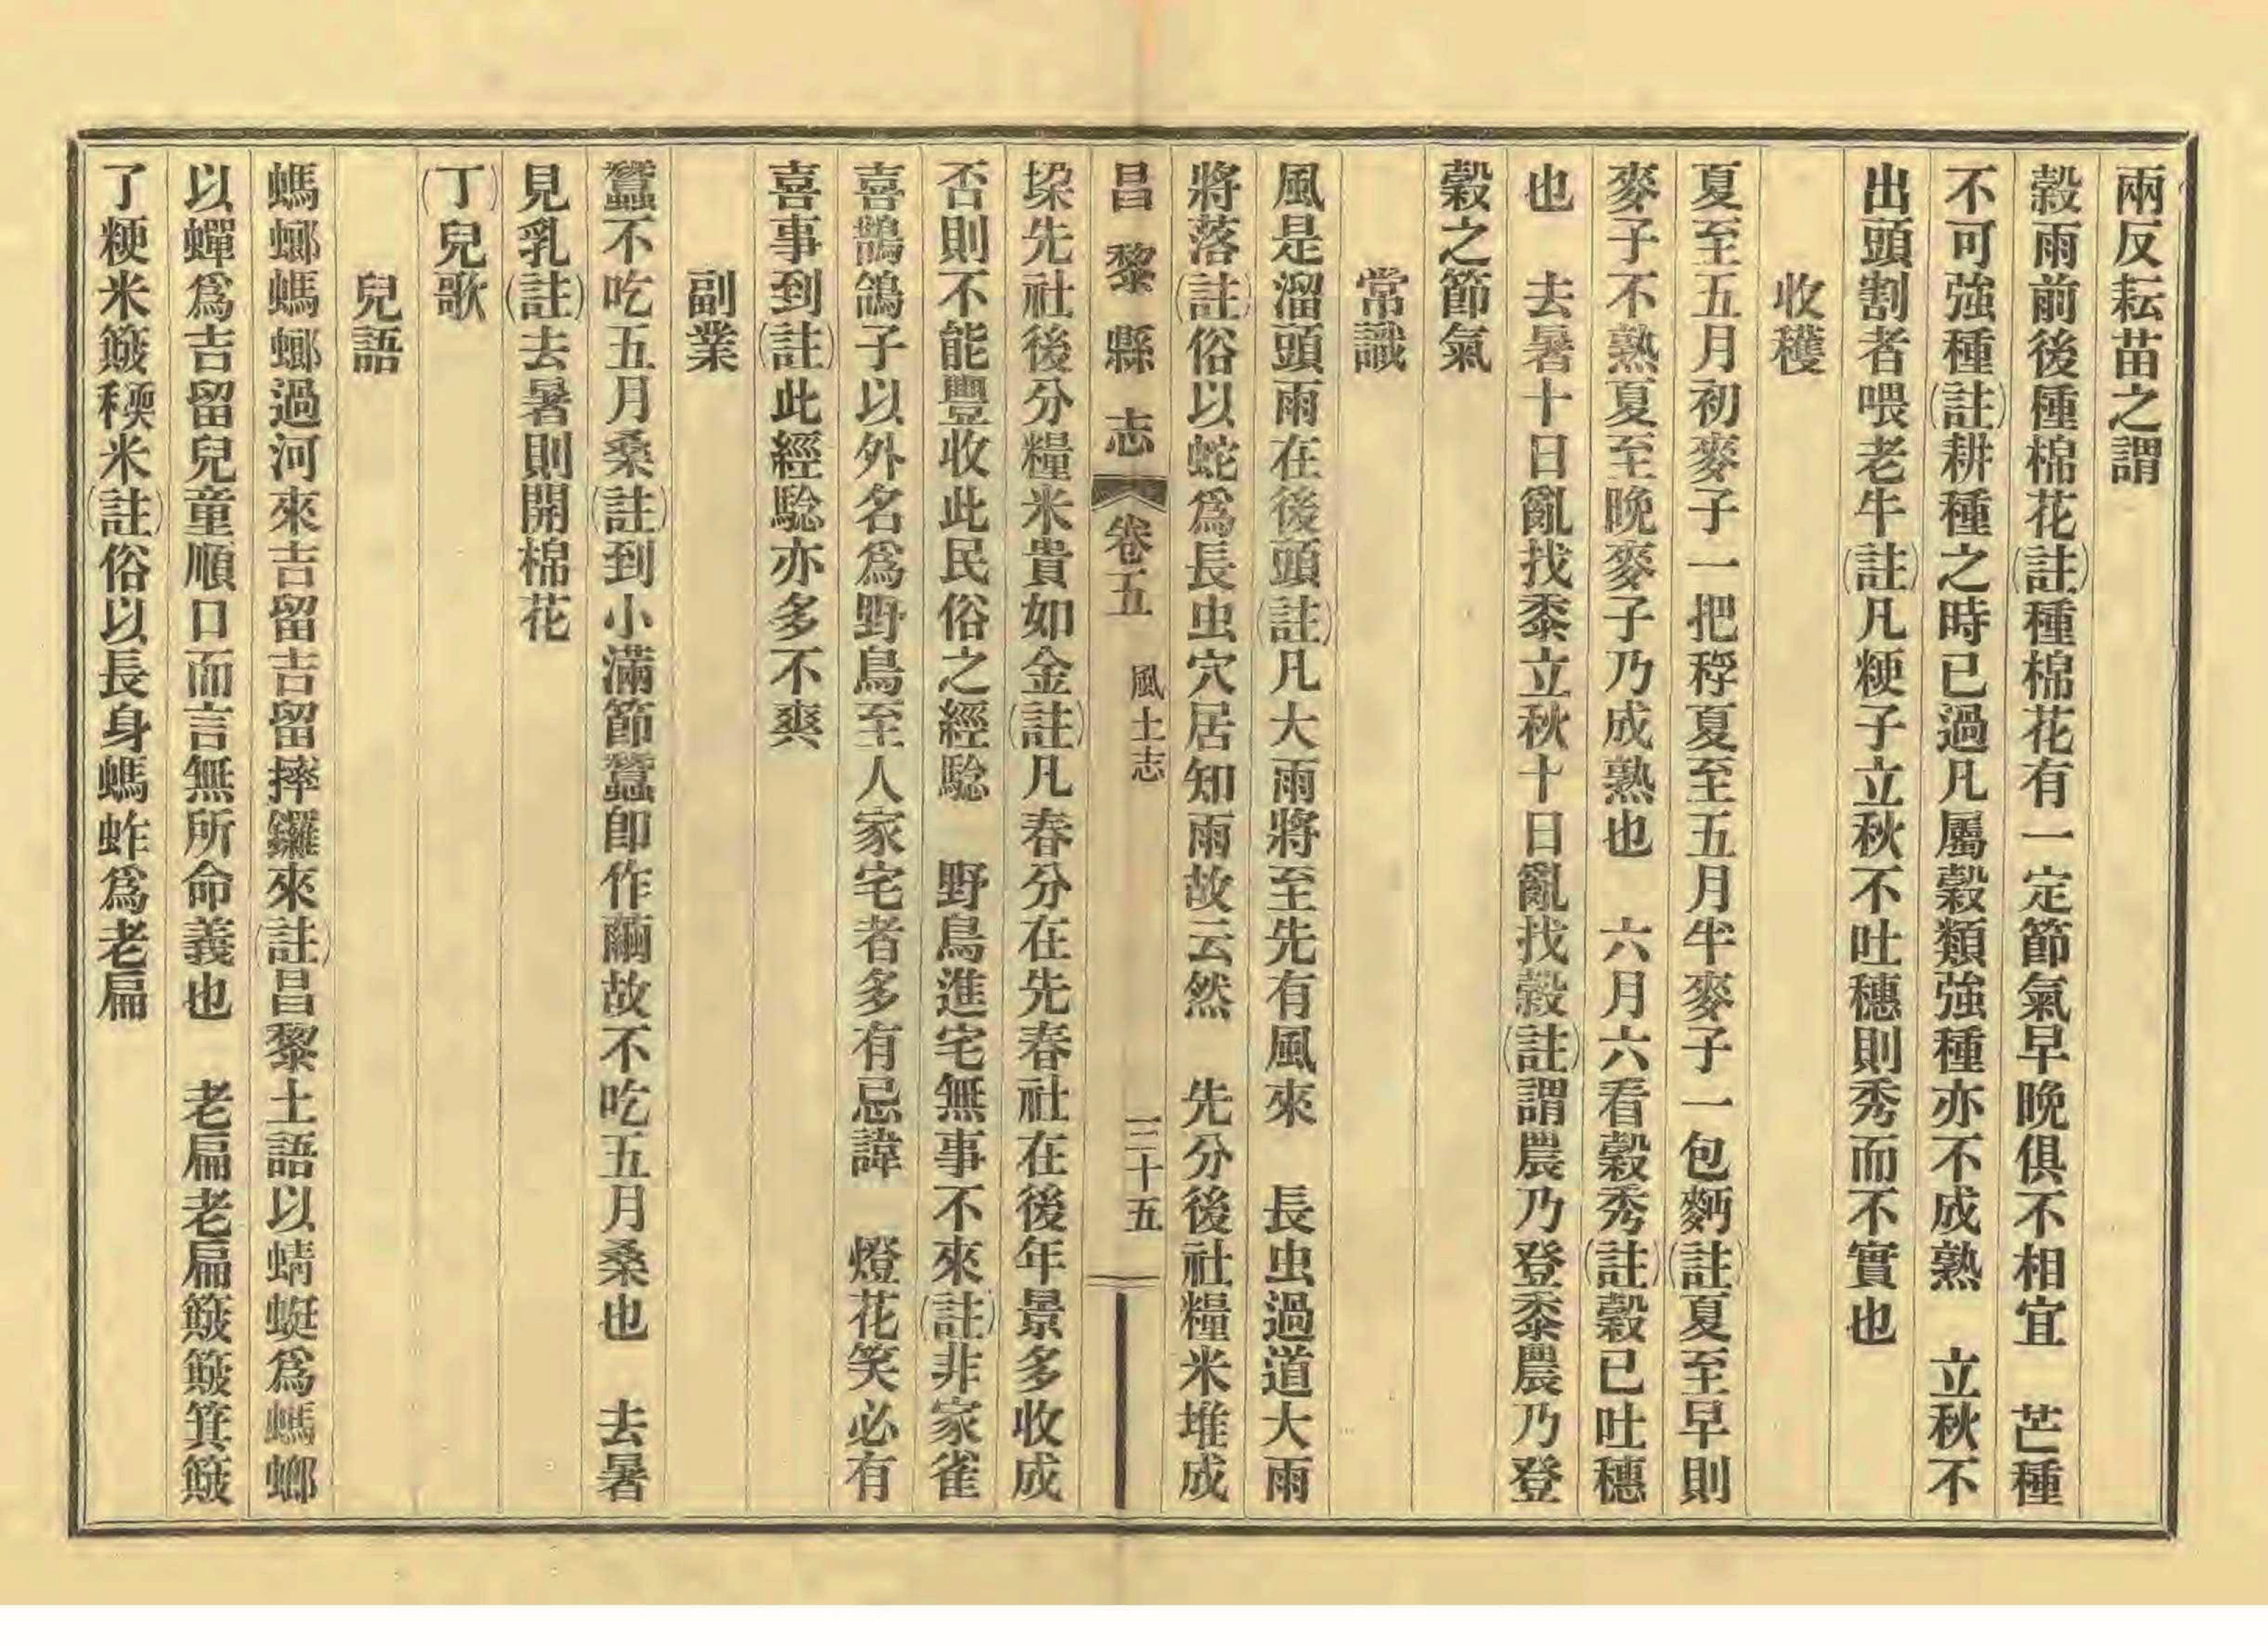 兩反耘苗之謂
穀雨前後種棉花(註)種棉花有一定節氣早晚俱不相宜　芒種
不可強種(註)耕種之時已過凡屬穀類強種亦不成熟　立秋不
出頭割者喂老牛(註)凡粳子立秋不吐穗則秀而不實也
收穫
夏至五月初麥子一把稃夏至五月半麥子一包麪(註)夏至早則
麥子不熟夏至晚麥子乃成熟也　六月六看穀秀(註)穀已吐穗
也　去暑十日亂找黍立秋十日亂找穀(註)謂農乃登黍農乃登
穀之節氣
常識
風是溜頭雨在後頭(註)凡大雨將至先有風來　長虫過道大雨
將落(註)俗以蛇爲長虫穴居知雨故云然　先分後社糧米堆成
昌黎縣志　卷五　風土志　三十五
垜先社後分糧米貴如金(註)凡春分在先春社在後年景多收成
否則不能豐收此民俗之經騐　野鳥進宅無事不來(註)非家雀
喜鵲鴿子以外名爲野鳥至人家宅者多有忌諱　燈花笑必有
喜事到(註)此經騐亦多不爽
副業
蠶不吃五月桑(註)到小滿節蠶卽作繭故不吃五月桑也　去暑
見乳(註)去暑則開棉花
(丁)兒歌
兒語
螞螂螞螂過河來吉留吉留摔鑼來(註)昌黎土語以蜻蜓爲螞螂
以蟬爲吉留兒童順口而言無所命義也　老扁老扁簸簸箕簸
了粳米簸稉米(註)俗以長身螞蚱爲老扁